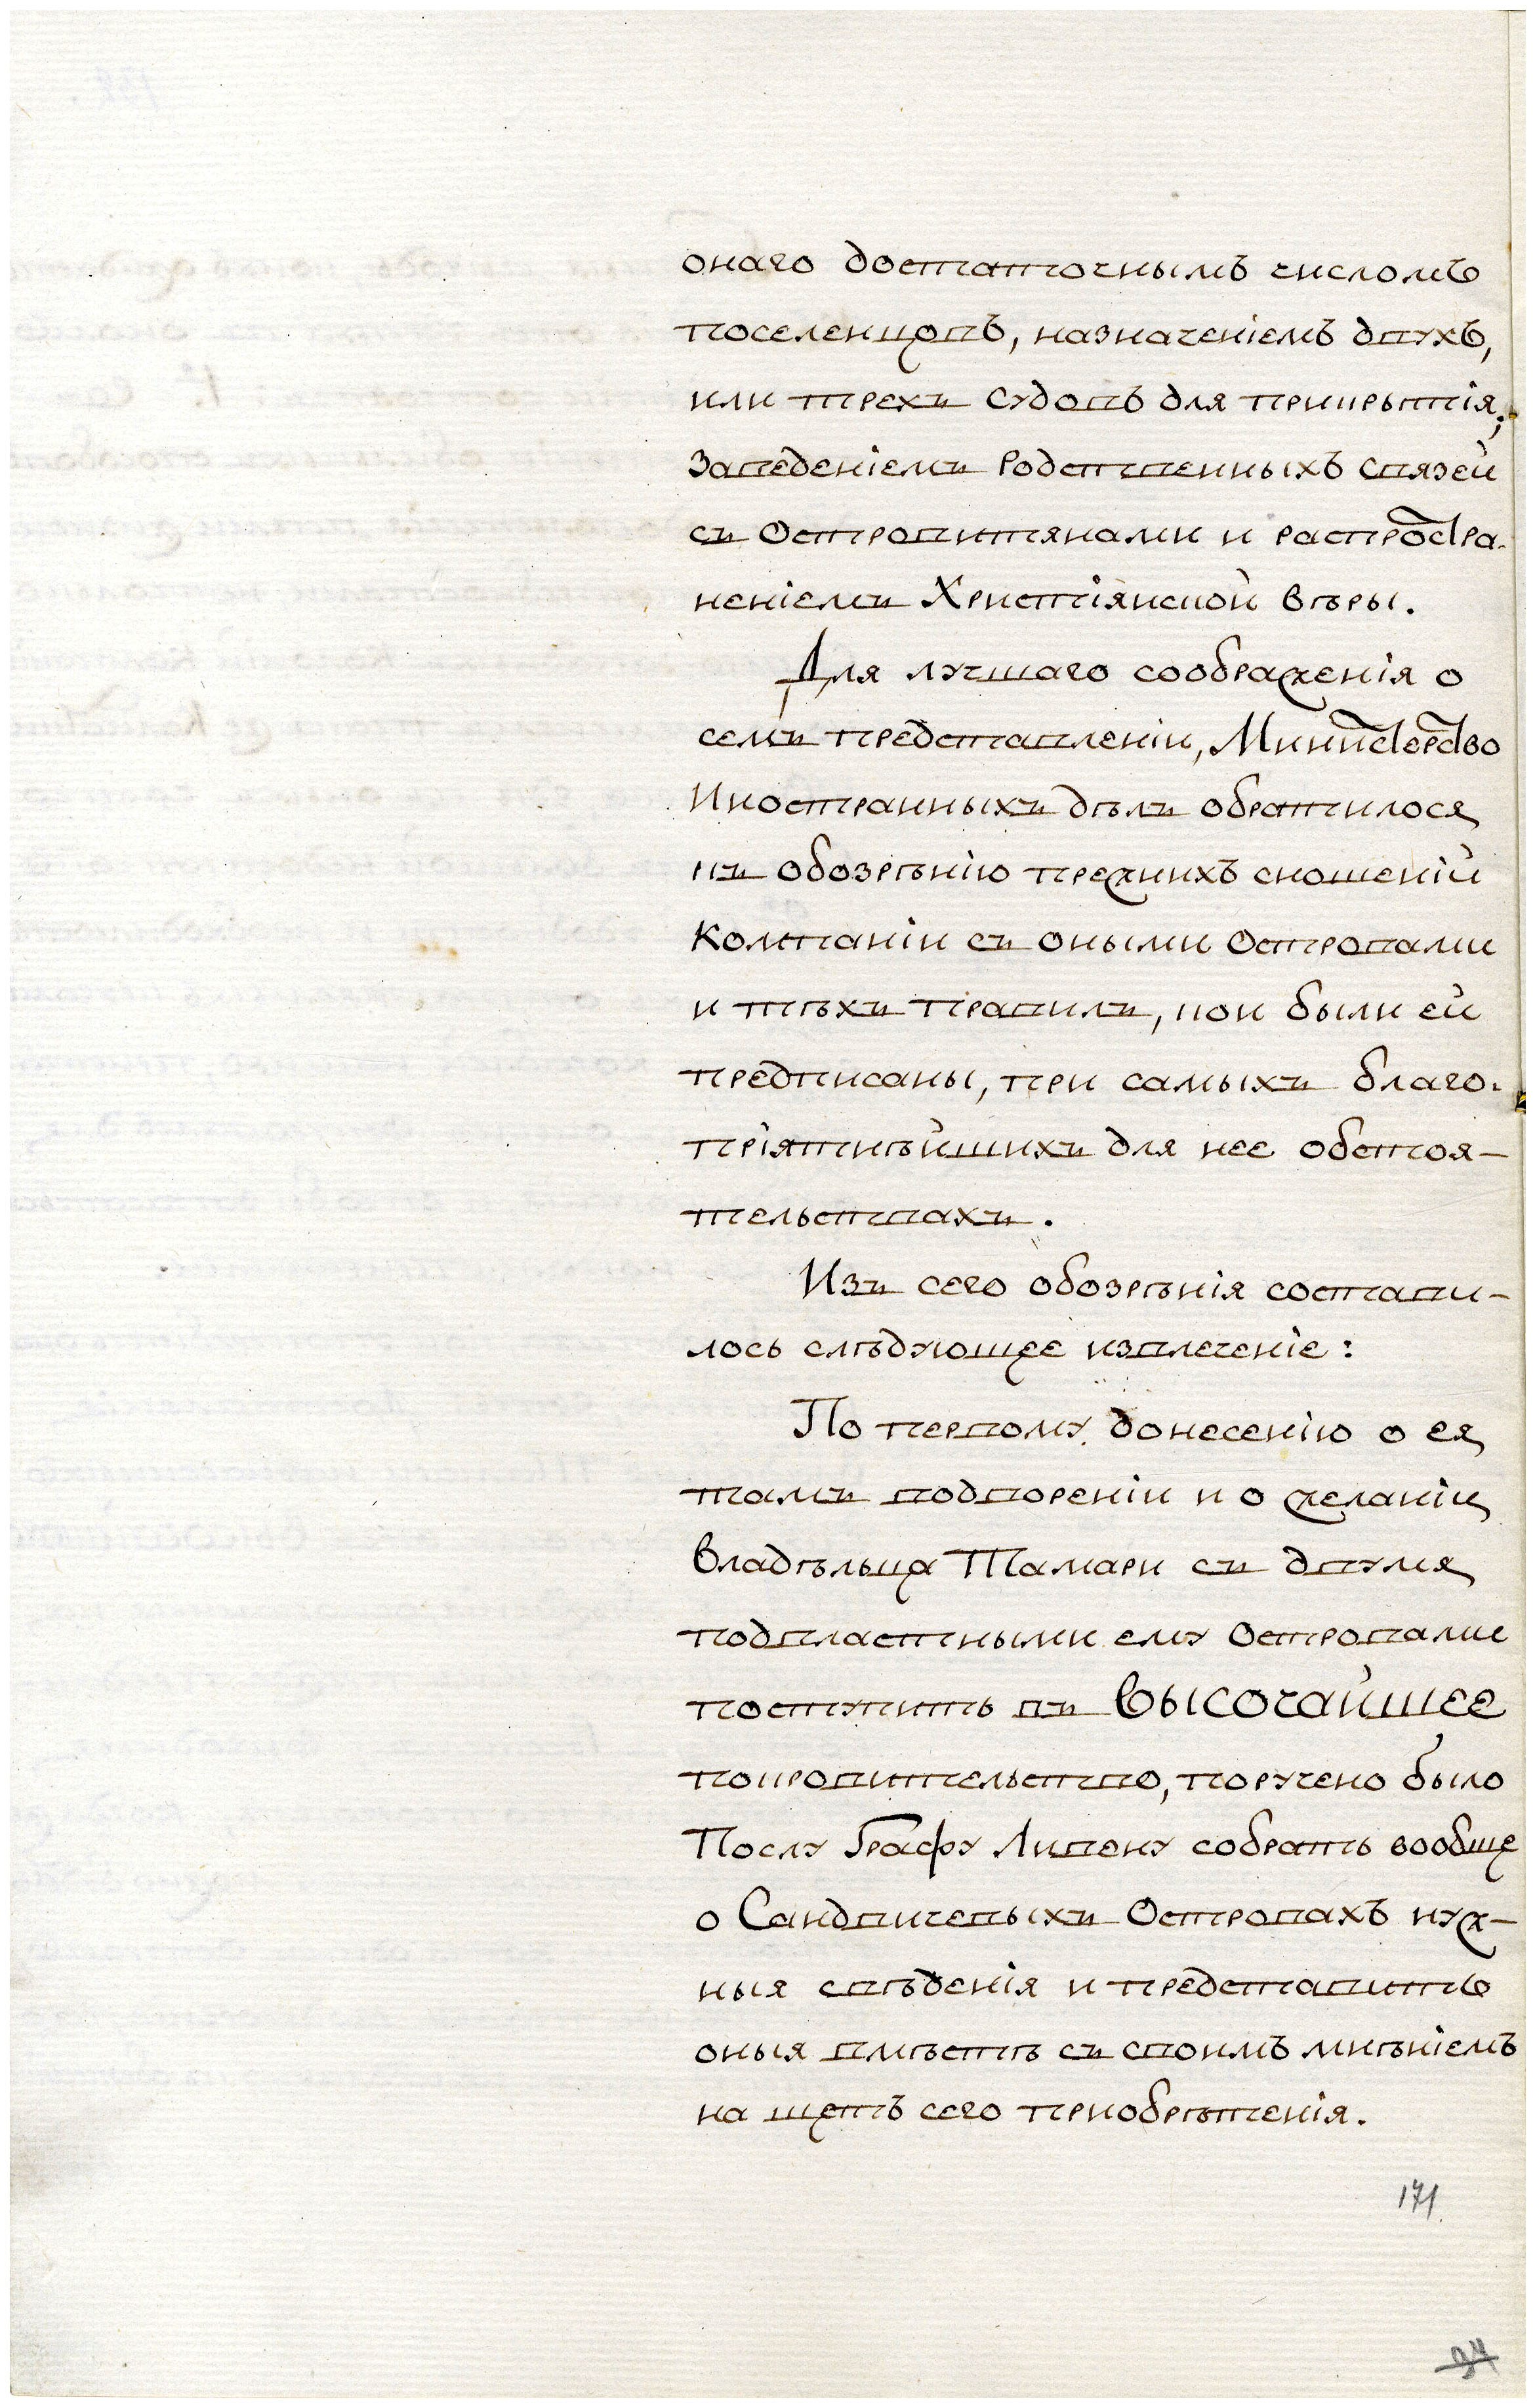 онаго достаточнымъ числомъ
поселенцовъ, назначеніемъ двухъ,
или трехъ судовъ для прикрытія;
заведеніемъ родственныхъ связей
съ Островитянами и распростра-
неніемъ Христіянской вѣры.
Для лучшаго соображенія о
семъ представленіи, Министерство
Иностранныхъ дѣлъ обратилося
къ обозрѣнію прежнихъ сношеній
Компаніи съ оными Островами
и тѣхъ правилъ, кои были ей
предписаны, при самыхъ благо-
пріятнѣйшихъ для нее обстоя-
тельствахъ.
Изъ сего обозрѣнія состави-
лось слѣдующее извлеченіе:
По первому донесенію о ея
тамъ водвореніи и о желаніи
Владѣльца Тамари съ двумя
подвластными ему Островами
поступить въ ВЫСОЧАЙШЕЕ
покровительство, поручено было
Послу Графу Ливену собрать вообще
о Сандвичевыхъ Островахъ нуж-
ныя свѣденія и представить
оныя вмѣстѣ съ своимъ мнѣніемъ
на щетъ сего приобрѣтенія.
171